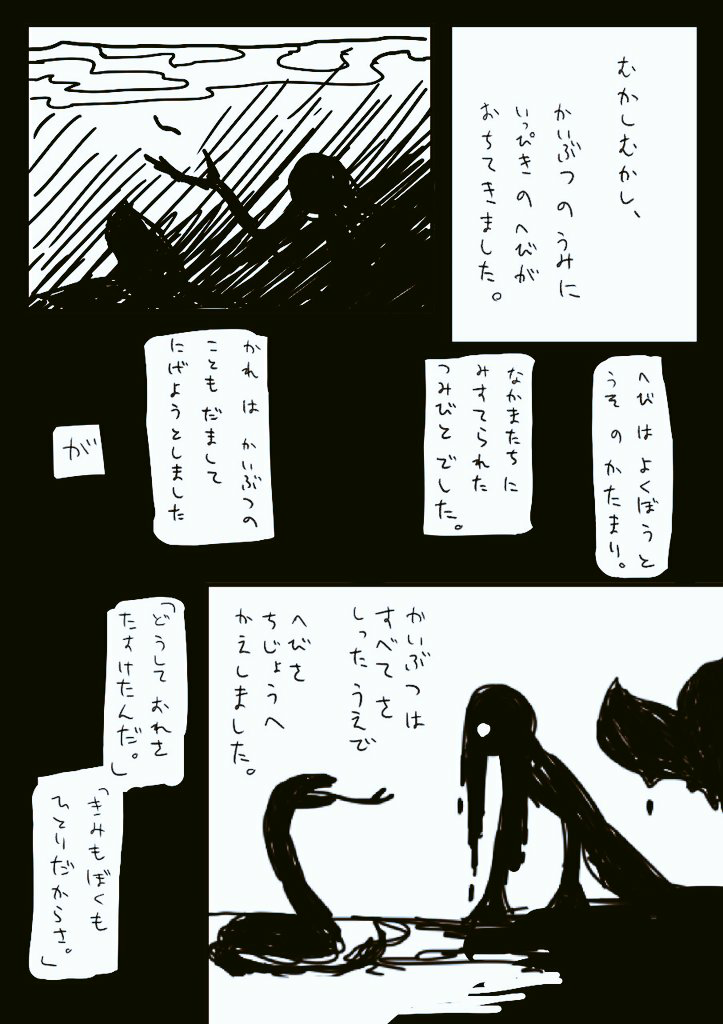 むかしむかし、
かいぶつのうみに
いっぴきのへびが
おちてきました。
へびはよくぼうと
うそのかたまり。
なかまたちに
みすてられた
つみびとでした。
かれはかいぶつの
こともだまして
にげようとしました
が
かいぶつは
すべてを
しったうえで
へびを
ちじょうへ
かえしました。
「どうしておれを
たすけたんだ。」
「きみもぼくも
ひとりだからさ。」